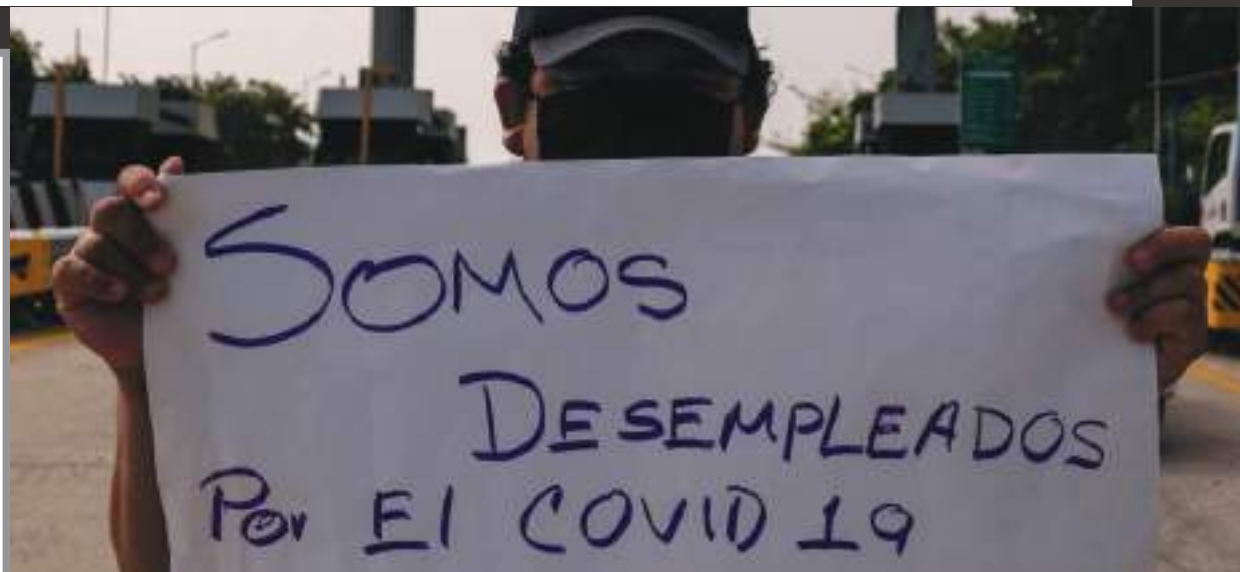 SOMOS
DESEMPLEADOS
Por El COVID 19